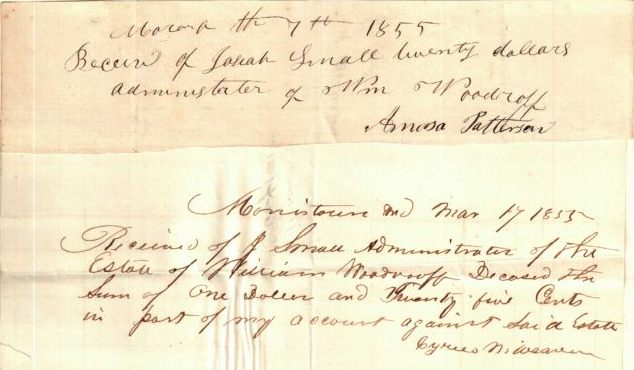 March th 7th 1855
Receivd of Josiah Small twenty dollars
administrater of Wm Woodroff
Amosa Patterson
Morristown Ind Mar 17 1855
Received of J Small Administrater of the
Estate of William Woodroff Decased the
Sum of One Doller and Twenty five Cents
in part of my account against Said Estate